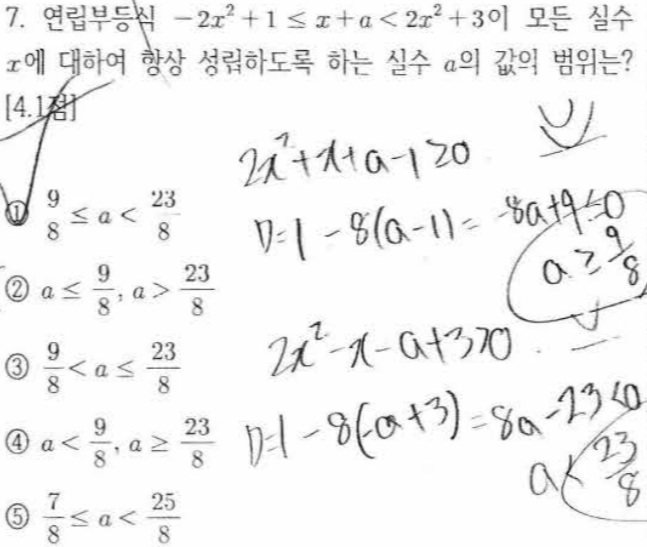 7. 연립부등식 -2x² + 1 ≤ x + a < 2x² + 3이 모든 실수
x에 대하여 항상 성립하도록 하는 실수 a의 값의 범위는?
[4.1점]
① 9/8 ≤ a < 23/8
② a ≤ 9/8, a > 23/8
③ 9/8 < a ≤ 23/8
④ a < 9/8, a ≥ 23/8
⑤ 7/8 ≤ a < 25/8
2x²+x+a-1≥0
D=1-8(a-1)=-8a+9≤0
a≥9/8
2x²-x-a+3>0
D=1-8(-a+3)=8a-23<0
a<23/8